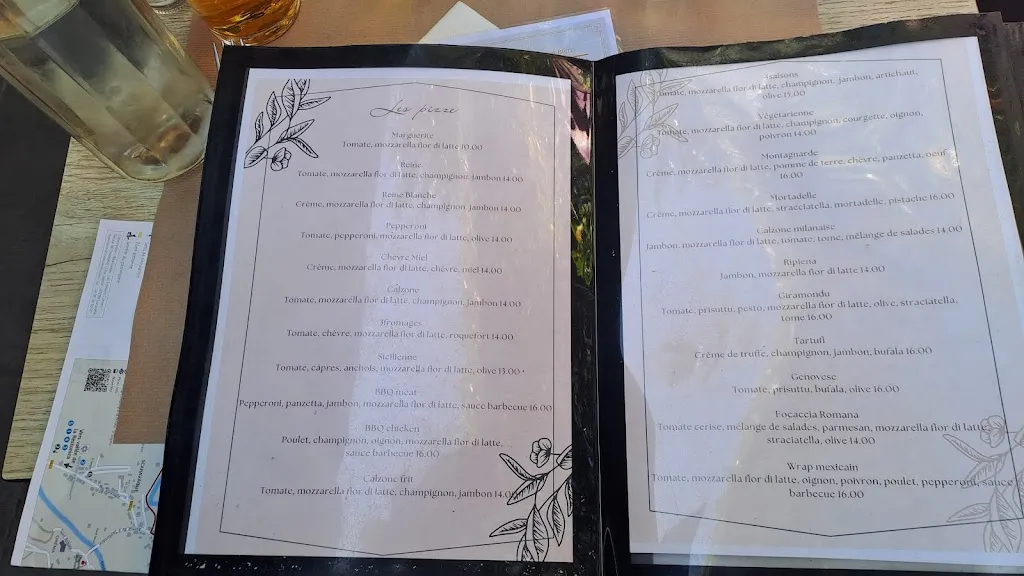 Les pizze
Marguerite
Tomate, mozzarella fior di latte 10.00
Reine
Tomate, mozzarella fior di latte, champignon, jambon 14.00
Reine Blanche
Crème, mozzarella fior di latte, champignon, jambon 14.00
Pepperoni
Tomate, pepperoni, mozzarella fior di latte, olive 14.00
Chèvre Miel
Crème, mozzarella fior di latte, chèvre, miel 14.00
Calzone
Tomate, mozzarella fior di latte, champignon, jambon 14.00
3fromages
Tomate, chèvre, mozzarella fior di latte, roquefort 14.00
Sicilienne
Tomate, câpres, anchois, mozzarella fior di latte, olive 13.00
BBQ meat
Pepperoni, panzetta, jambon, mozzarella fior di latte, sauce barbecue 16.00
BBQ chicken
Poulet, champignon, oignon, mozzarella fior di latte,
sauce barbecue 16.00
Calzone frit
Tomate, mozzarella fior di latte, champignon, jambon 14.00
4saisons
Tomate, mozzarella fior di latte, champignon, jambon, artichaut,
olive 15.00
Végétarienne
Tomate, mozzarella fior di latte, champignon, courgette, oignon,
poivron 14.00
Montagnarde
Crème, mozzarella fior di latte, pomme de terre, chèvre, panzetta, oeuf
16.00
Mortadelle
Crème, mozzarella fior di latte, stracciatella, mortadelle, pistache 16.00
Calzone milanaise
Jambon, mozzarella fior di latte, tomate, tome, mélange de salades 14.00
Ripiena
Jambon, mozzarella fior di latte 14.00
Giramondu
Tomate, prisuttu, pesto, mozzarella fior di latte, olive, straciatella,
tome 16.00
Tartufi
Crème de truffe, champignon, jambon, bufala 16.00
Genovese
Tomate, prisuttu, bufala, olive 16.00
Focaccia Romana
Tomate cerise, mélange de salades, parmesan, mozzarella fior di latte,
straciatella, olive 14.00
Wrap mexicain
Tomate, mozzarella fior di latte, oignon, poivron, poulet, pepperoni, sauce
barbecue 16.00